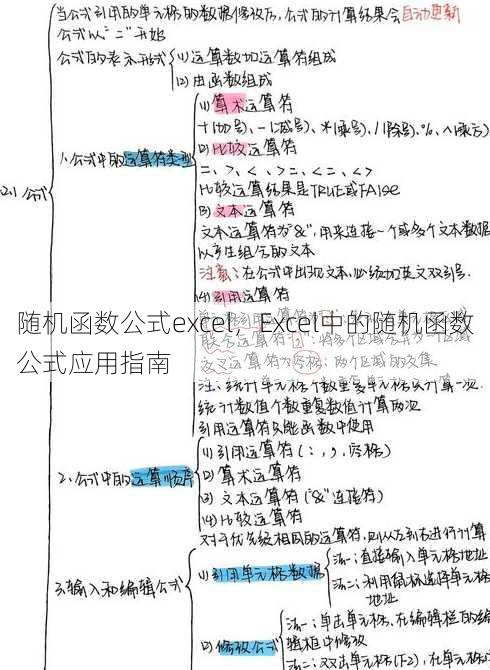 当公式引用的单元格的数据修改后,公式的计算结果会自动更新
公式以“=”开始
公式的表示形式
(1)运算数和运算符组成
(2)由函数组成
2.1 公式
1.公式中的运算符类型
(1)算术运算符
+(加号)、-(减号)、*(乘号)、/(除号)、%、^(乘方)
(2)比较运算符
=、>、<、>=、<=、<>
比较运算结果是TRUE或FAlse
(3)文本运算符
文本运算符为“&”,用来连接一个或多个文本数据
以产生组合的文本
注意:在公式中出现文本,必须加英文双引号.
(4)引用运算符
随机函数公式excel，Excel中的随机函数
公式应用指南
交叉运算符为空格:两个区域的交集
注:统计单元格个数重复单元格只计算一次.
统计数值个数重复数值计算两次
引用运算符只能函数中使用
2.公式中的运算顺序
(1)引用运算符(:,,,空格)
(2)算术运算符
(3)文本运算符(“&”连接符)
(4)比较运算符
对于优先级相同的运算符,则从左到右进行计算
3.输入和编辑公式
(1)引用单元格数据
法一:直接输入单元格地址
法二:利用鼠标选择单元格
地址
(2)修改公式
法一:单击单元格,在编辑栏的编
辑框中修改
法二:双击单元格(F2),在单元格